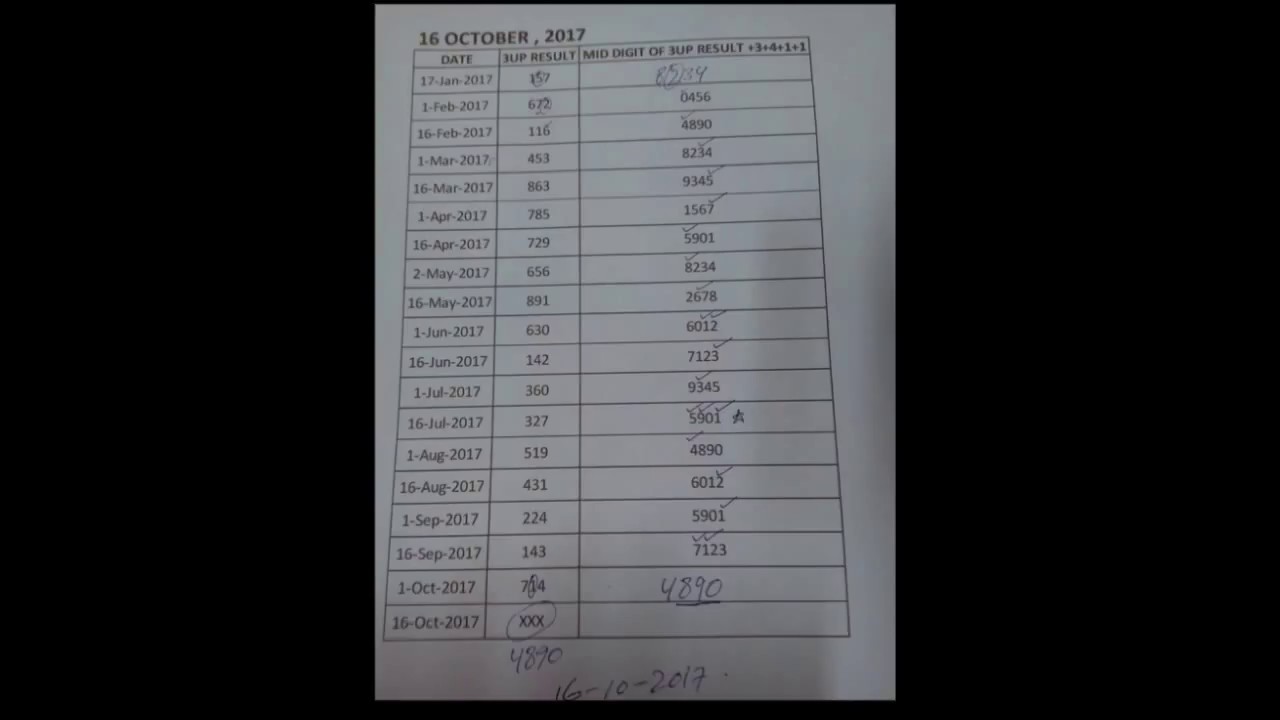 16 OCTOBER , 2017
DATE 3UP RESULT MID DIGIT OF 3UP RESULT +3+4+1+1
17-Jan-2017 157 8234
1-Feb-2017 672 0456
16-Feb-2017 116 4890
1-Mar-2017 453 8234
16-Mar-2017 863 9345
1-Apr-2017 785 1567
16-Apr-2017 729 5901
2-May-2017 656 8234
16-May-2017 891 2678
1-Jun-2017 630 6012
16-Jun-2017 142 7123
1-Jul-2017 360 9345
16-Jul-2017 327 5901
1-Aug-2017 519 4890
16-Aug-2017 431 6012
1-Sep-2017 224 5901
16-Sep-2017 143 7123
1-Oct-2017 714 4890
16-Oct-2017 XXX
4890
16-10-2017